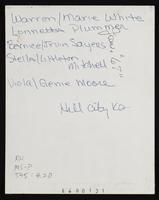 Warren/Marie White
Lonnetta Plummer
Bernice/Irvin Sayers
Stella/Littleton
Mitchell
June "67"
Viola/Gernie Moore
Hill City Ks
NU
MS-P
545-4.20